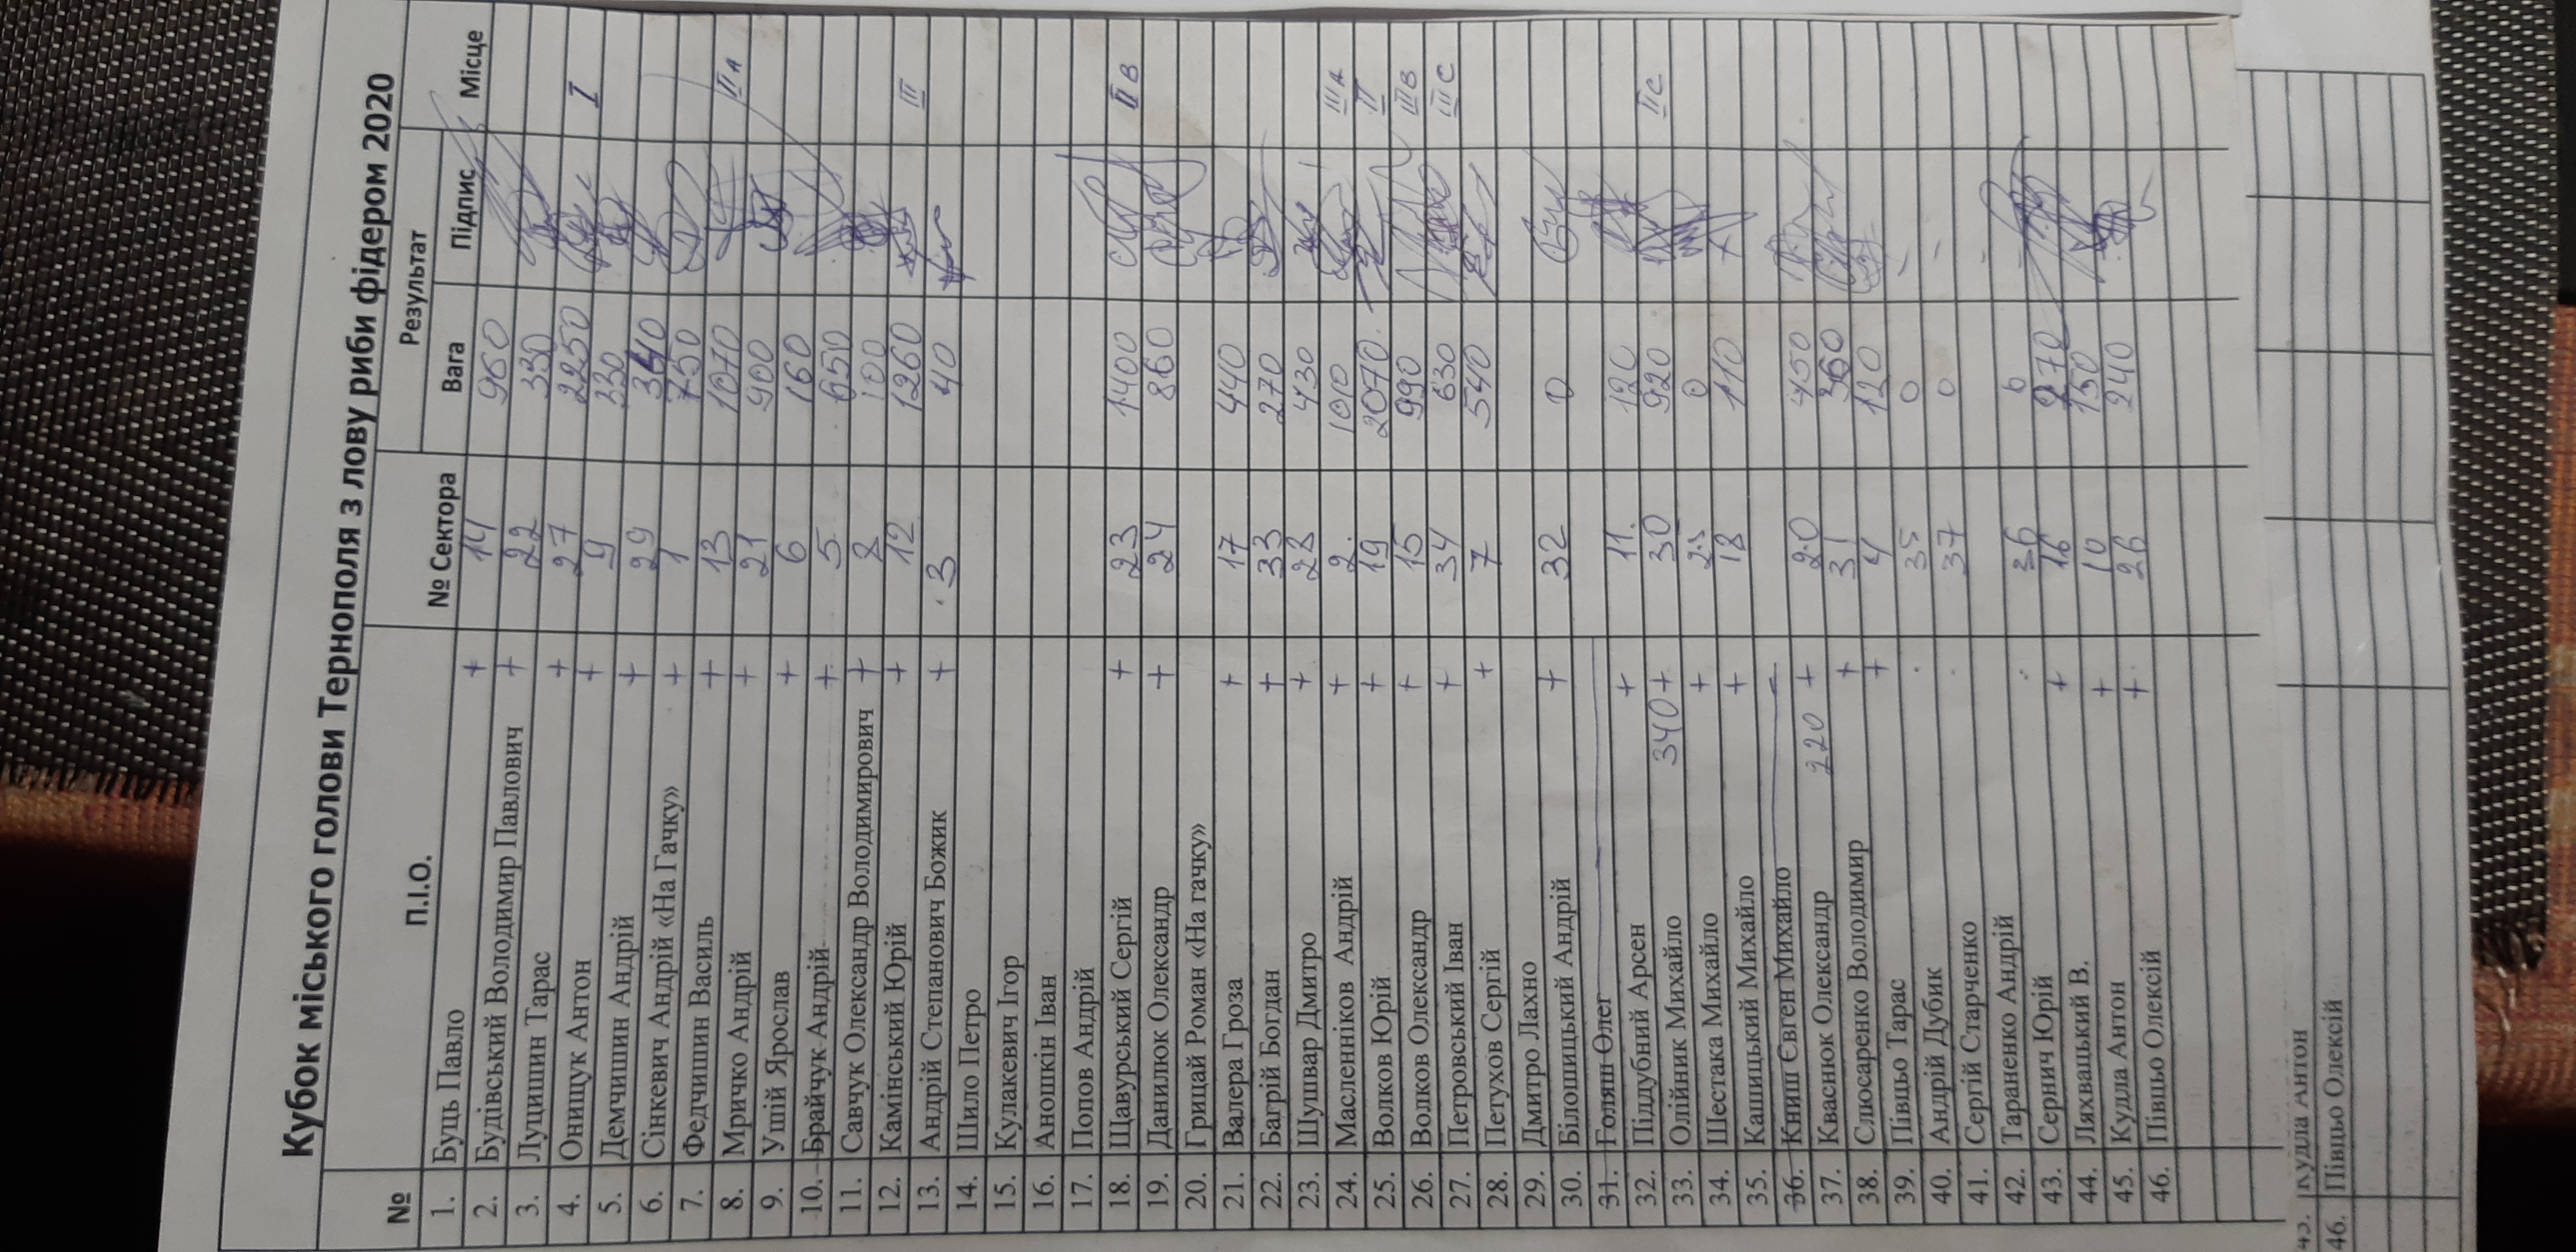 Кубок міського голови Тернополя з лову риби фідером 2020
№ П.І.О. № Сектора Результат Місце
Вага Підпис
1. Буць Павло + 14 960
2. Будівський Володимир Павлович + 22 330
3. Луцишин Тарас + 27 2250 I
4. Онищук Антон + 9 330
5. Демчишин Андрій + 29 340
6. Сінкевич Андрій «На Гачку» + 1 750
7. Федчишин Василь + 13 1070 IIA
8. Мричко Андрій + 21 900
9. Ушій Ярослав + 6 160
10. Брайчук Андрій + 5 650
11. Савчук Олександр Володимирович + 8 100
12. Камінський Юрій + 12 1260 III
13. Андрій Степанович Божик + 3 40
14. Шило Петро
15. Кулакевич Ігор
16. Аношкін Іван
17. Попов Андрій
18. Щавурський Сергій + 23 1400 IIB
19. Данилюк Олександр + 24 860
20. Грицай Роман «На гачку»
21. Валера Гроза + 17 440
22. Багрій Богдан + 33 270
23. Шушвар Дмитро + 28 430
24. Масленніков Андрій + 2. 1010 IIIA
25. Волков Юрій + 19 2070. II
26. Волков Олександр + 15 990 IIIB
27. Петровський Іван + 34 630 IIIC
28. Петухов Сергій + 7 540
29. Дмитро Лахно
30. Білошицький Андрій + 32 0
31. Голяш Олег
32. Піддубний Арсен + 11. 120
33. Олійник Михайло 340+ 30 920 IIC
34. Шестака Михайло + 25 0
35. Кашицький Михайло + 18 110
36. Книш Євген Михайло
37. Кваснюк Олександр 220 + 20 450
38. Слюсаренко Володимир + 31 360
39. Півцьо Тарас + 4 120
40. Андрій Дубик 35 0
41. Сергій Старченко 37 0
42. Тараненко Андрій
43. Сернич Юрій 36 0
44. Ляхвацький В. + 16 270
45. Кудла Антон + 10 150
46. Півцьо Олексій + 26 240
45. Кудла Антон
46. Півцьо Олексій